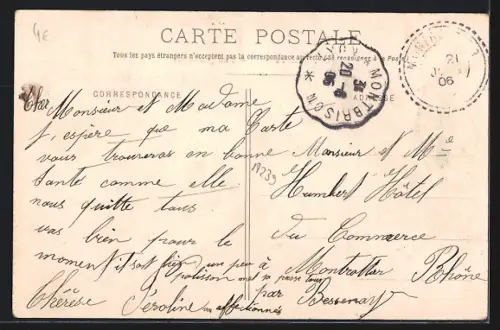 4€
CARTE POSTALE
Tous les pays étrangers n'acceptent pas la correspondance au recto
CORRESPONDANCE
ADRESSE
LYON * MONTBRISON *
3E
20 -6
06
21
06
Cher Monsieur et Madame
j'espère que ma Carte
vous trouveras en bonne
Sante comme elle
nous quitte tous
vas bien pour le
moment il soit bien un peu
polisson
Thérèse Séroline
affectionnés
19239
Monsieur et Me
Humbert Hôtel
du Commerce
à Montrottier Rhône
par Bessenay